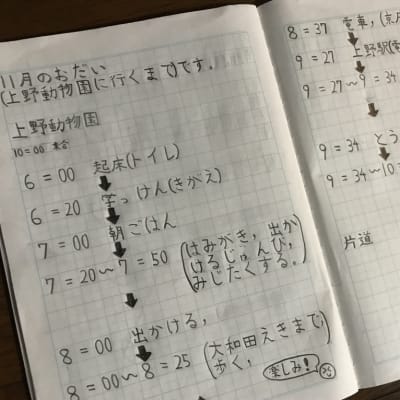 11月のおだい
(上野動物園に行くまで)です.
上野動物園
10=00 集合
6=00 起床(トイレ)
6=20 学っけん(きがえ)
7=00 朝ごはん
7=20〜7=50 (はみがき, 出か
けるじゅんび,
みじたくする.)
8=00 出かける,
8=00〜8=25 (大和田えきまで,
歩く,
楽しみ!
8=37 電車,
9=27 上野駅
9=27〜9=34
9=34 とう
9=34〜10=
片道